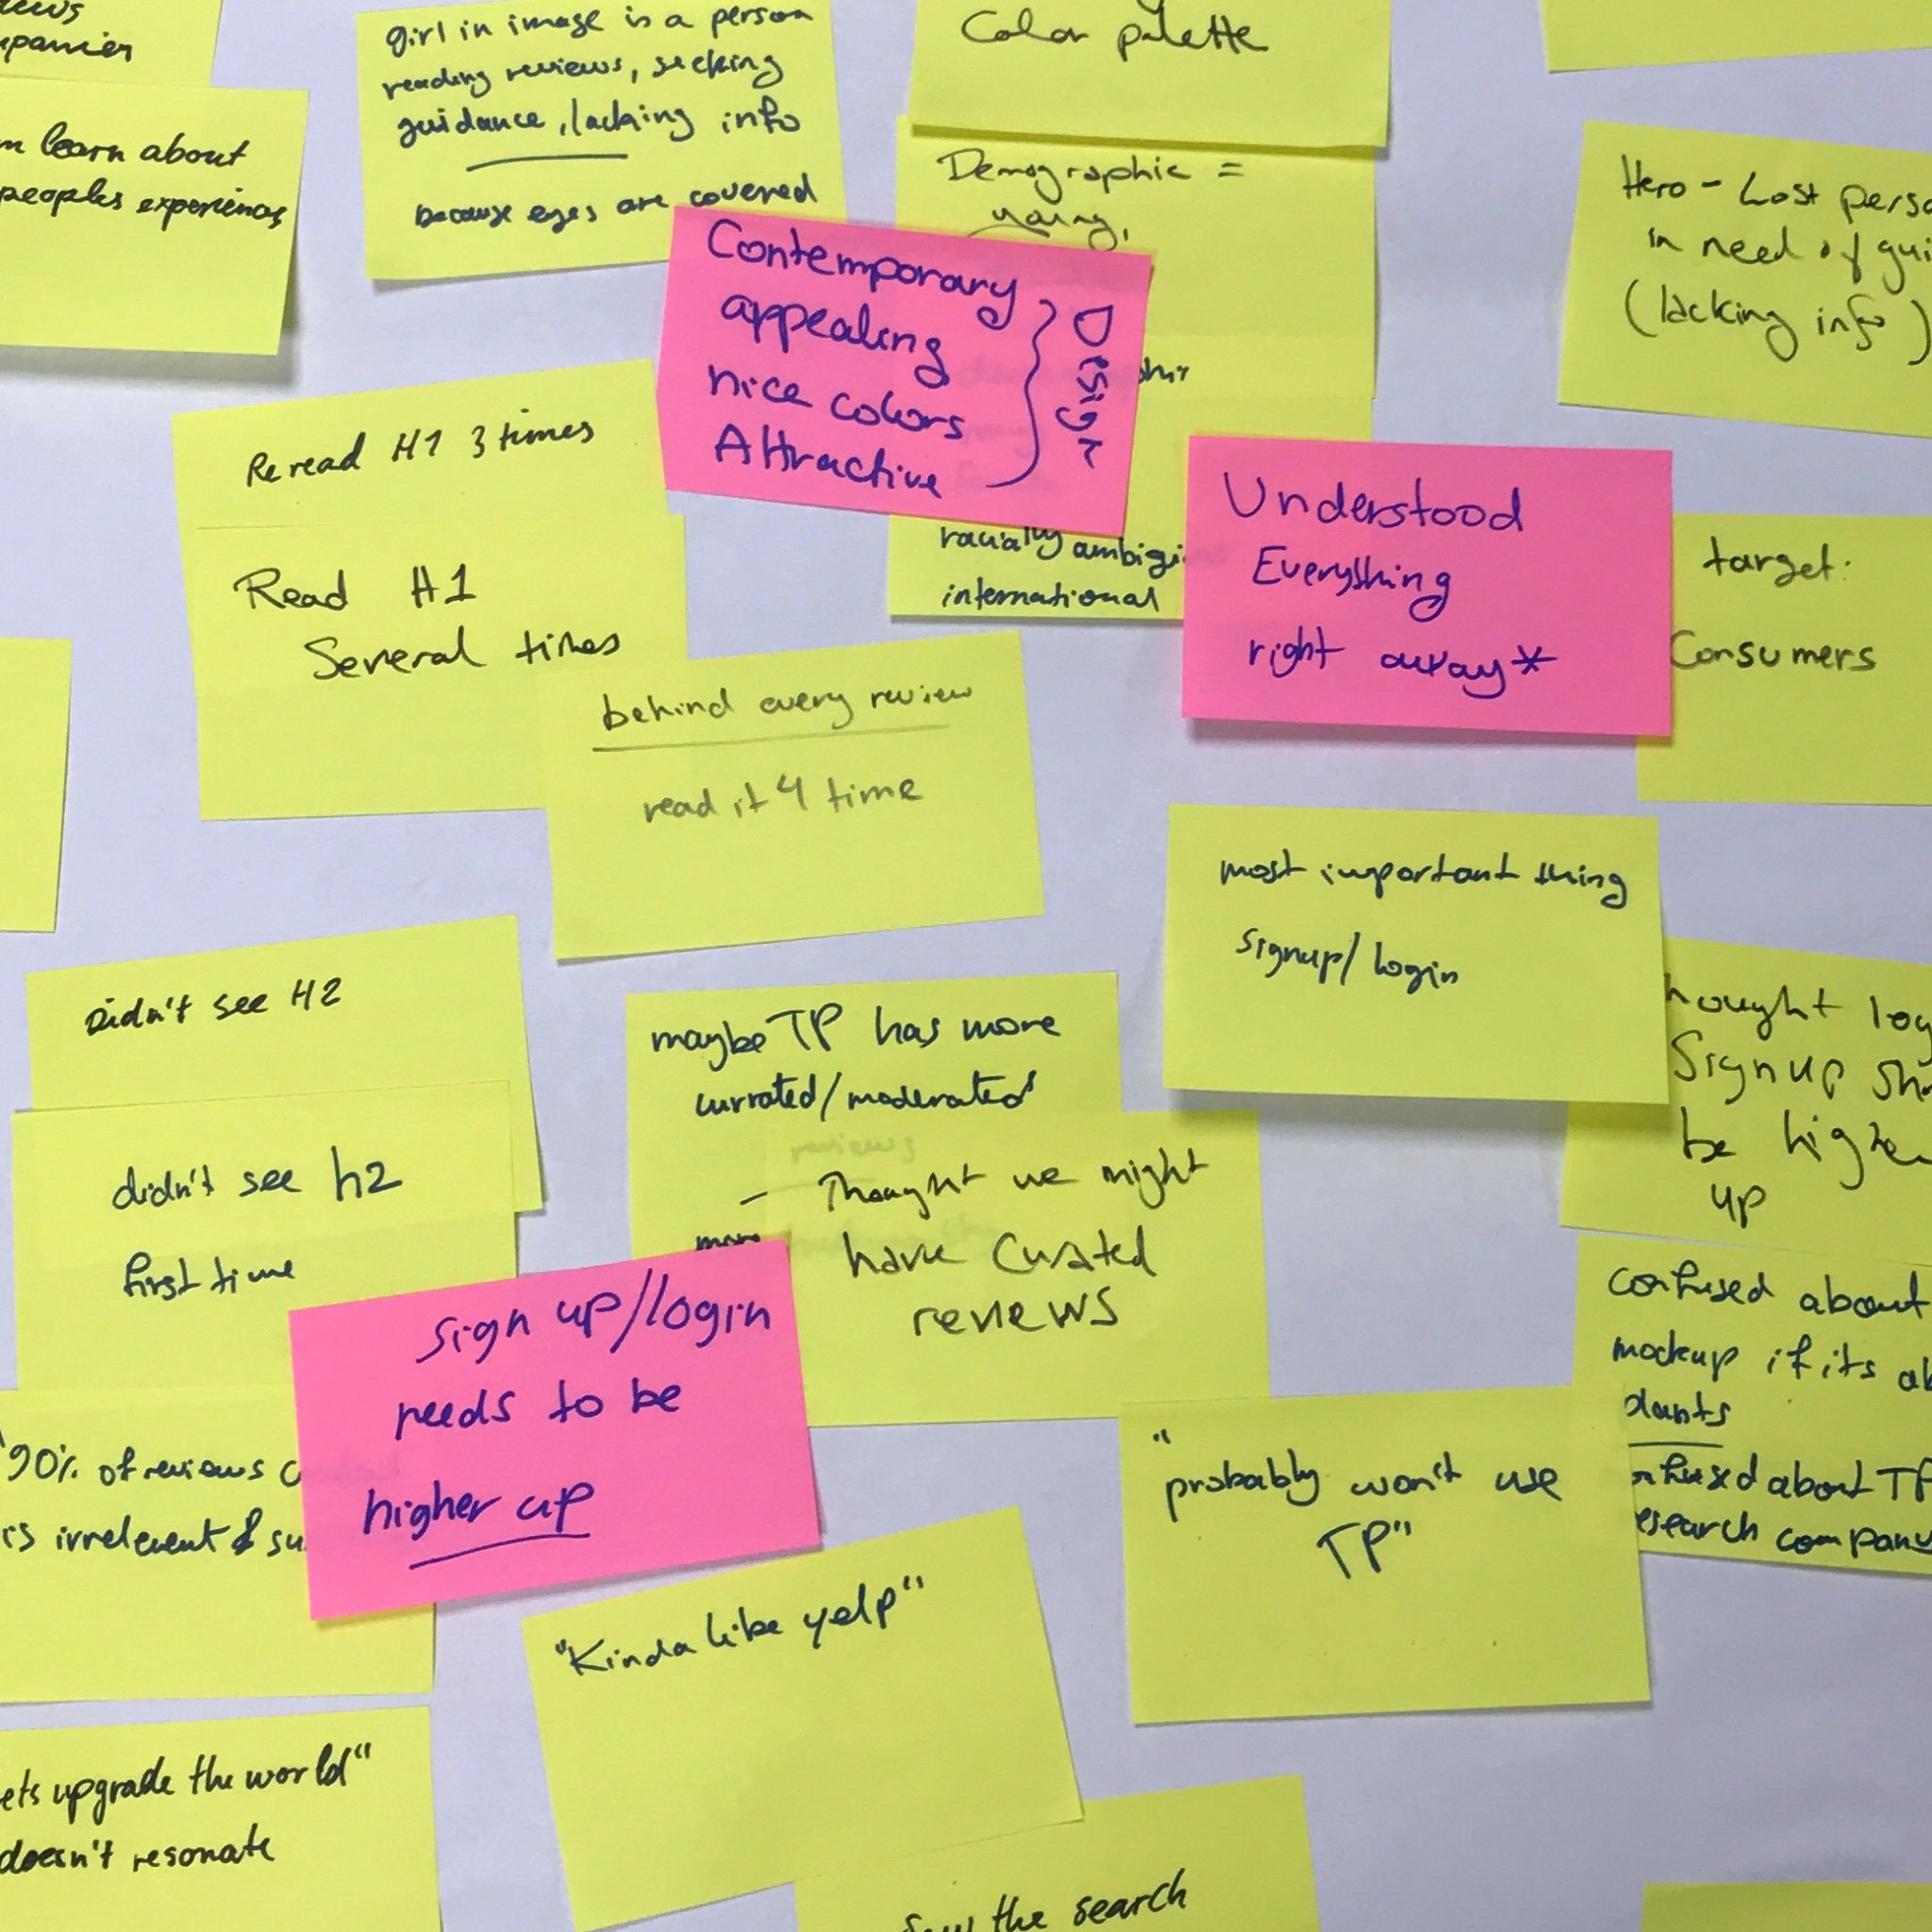 girl in image is a person
reading reviews, seeking
guidance, lacking info
because eyes are covered
Color palette
learn about
peoples
Demographic =
young,
racially
international
Hero - Lost
in need of
(lacking info)
Contemporary
appealing
nice colors
Attractive
Design
Reread H1 3 times
Read H1
Several times
Understood
Everything
right away*
target:
Consumers
behind every review
read it 4 time
most important thing
signup/login
Signup
be higher
up
Didn't see H2
didn't see h2
first time
maybe TP has more
currated/moderated
reviews
more
- Thought we might
have Curated
reviews
sign up/login
needs to be
higher up
confused about
mockup if its
about TP
company
90% of reviews
is irrelevent &
"probably won't use
TP"
"Kinda like yelp"
upgrade the world"
doesn't resonate
the search